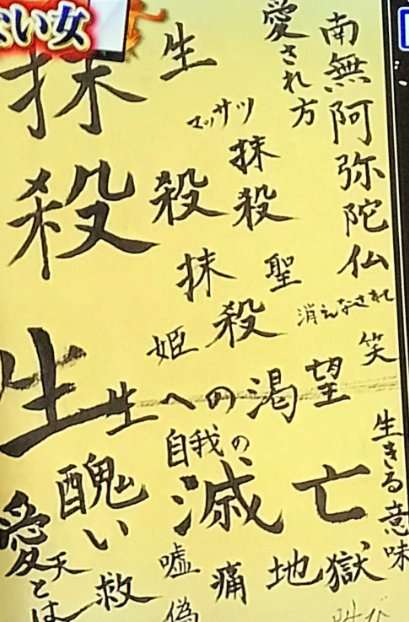 南無阿弥陀仏
愛され方
消えなされ
笑
生きる意味
マッサツ
抹殺
聖
生
殺
抹殺
姫
抹殺
生
生への渇望
自我の
滅亡
醜い
愛とは
天
救
嘘
偽
痛
地獄
叫び
ない女